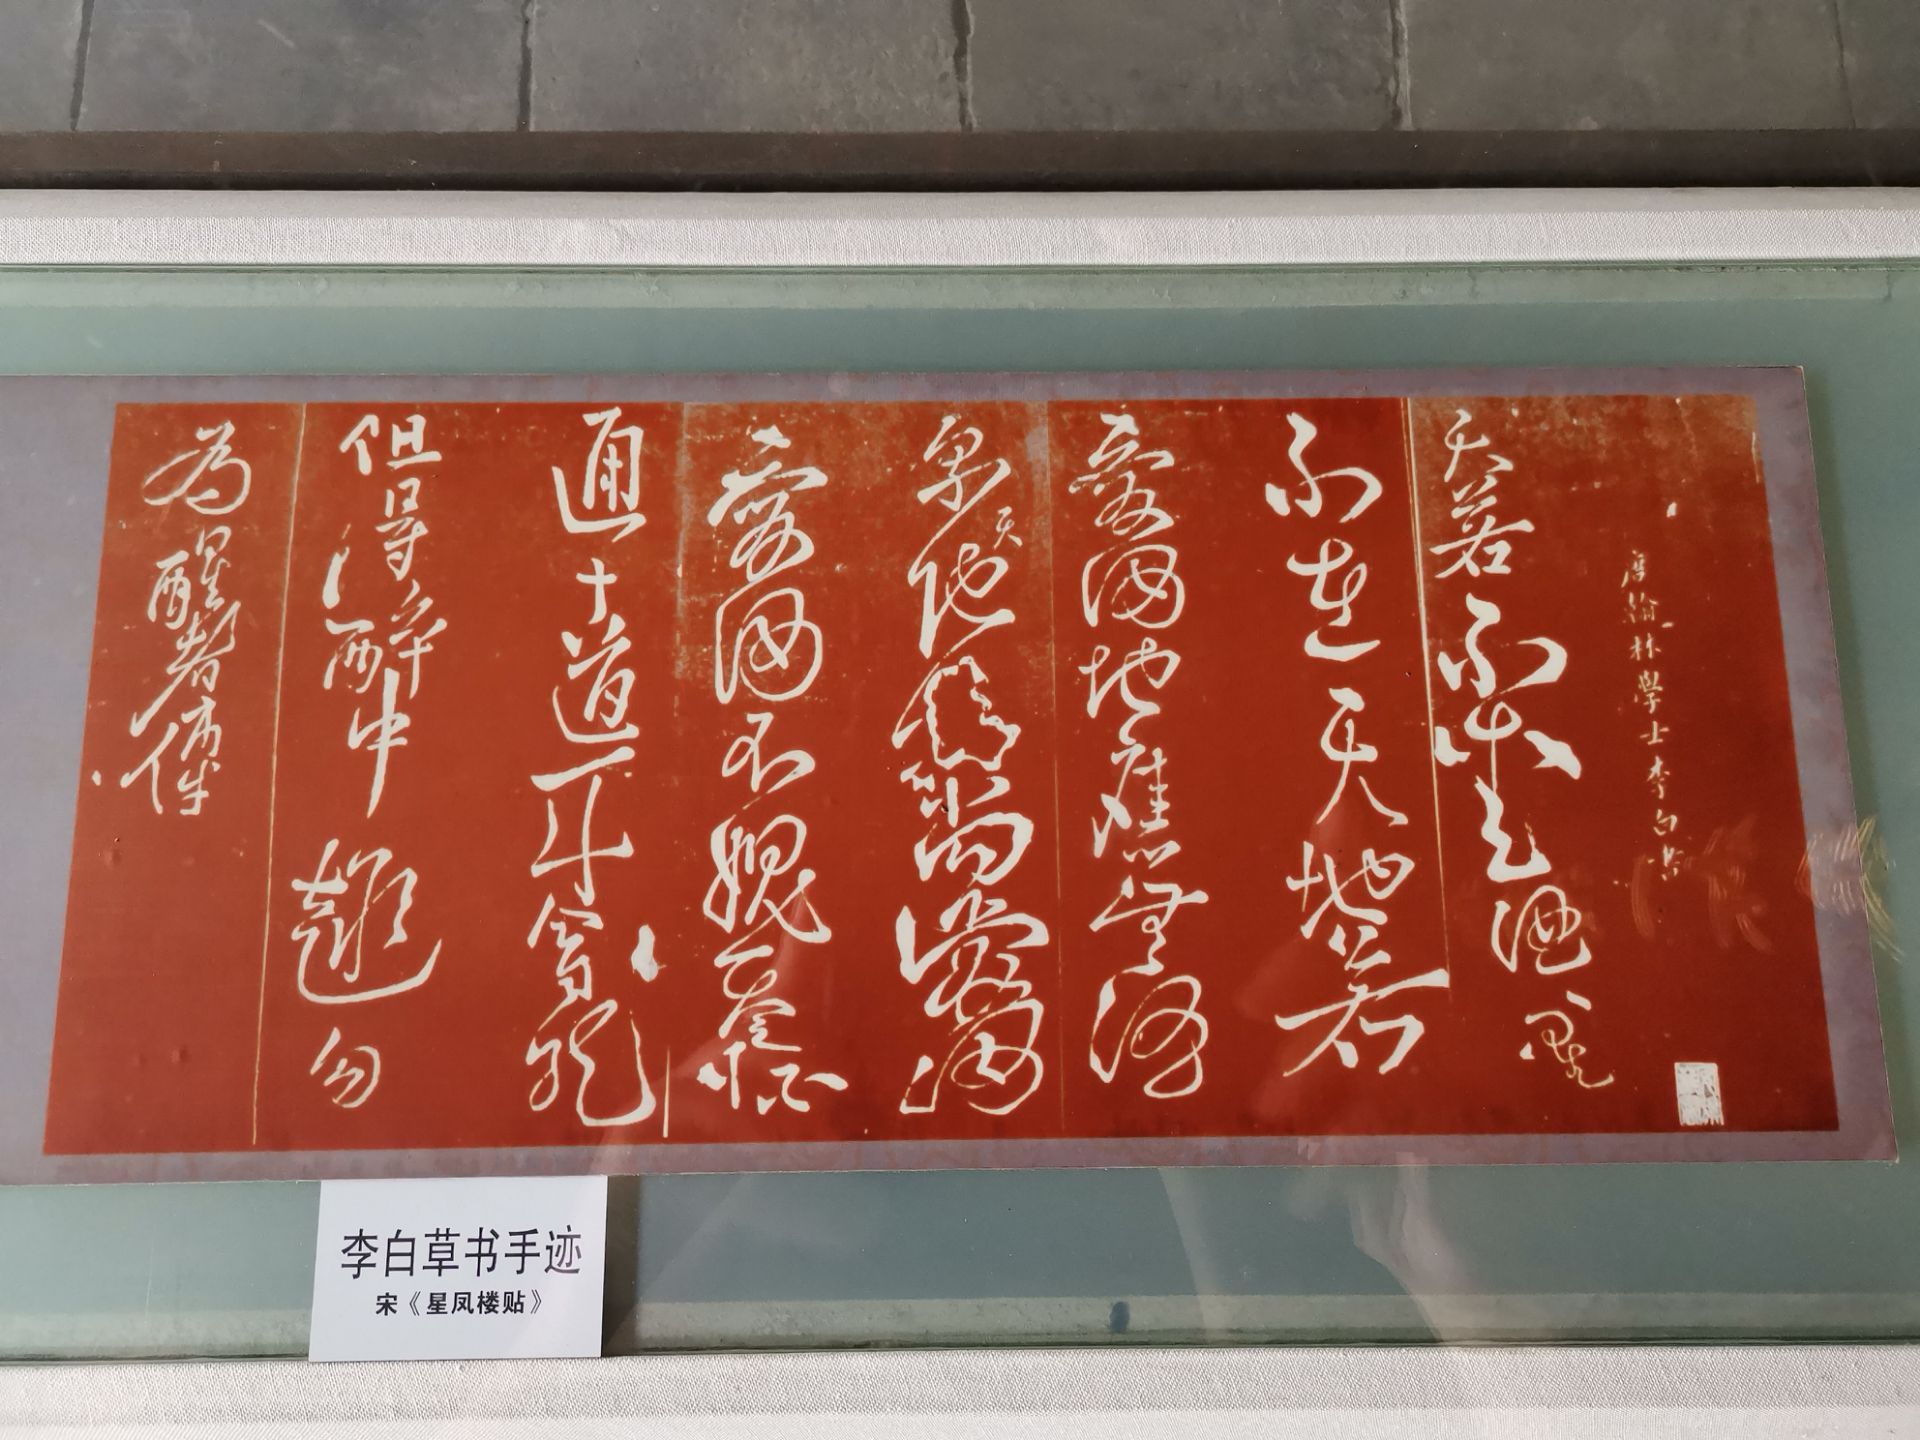 唐翰林學士李白書
天若不愛酒酒星
不在天地若
愛酒地應無酒
泉天地既愛酒
愛酒不愧天三杯
通大道一斗合自然
但得醉中趣勿
為醒者傳
李白草书手迹
宋《星凤楼贴》